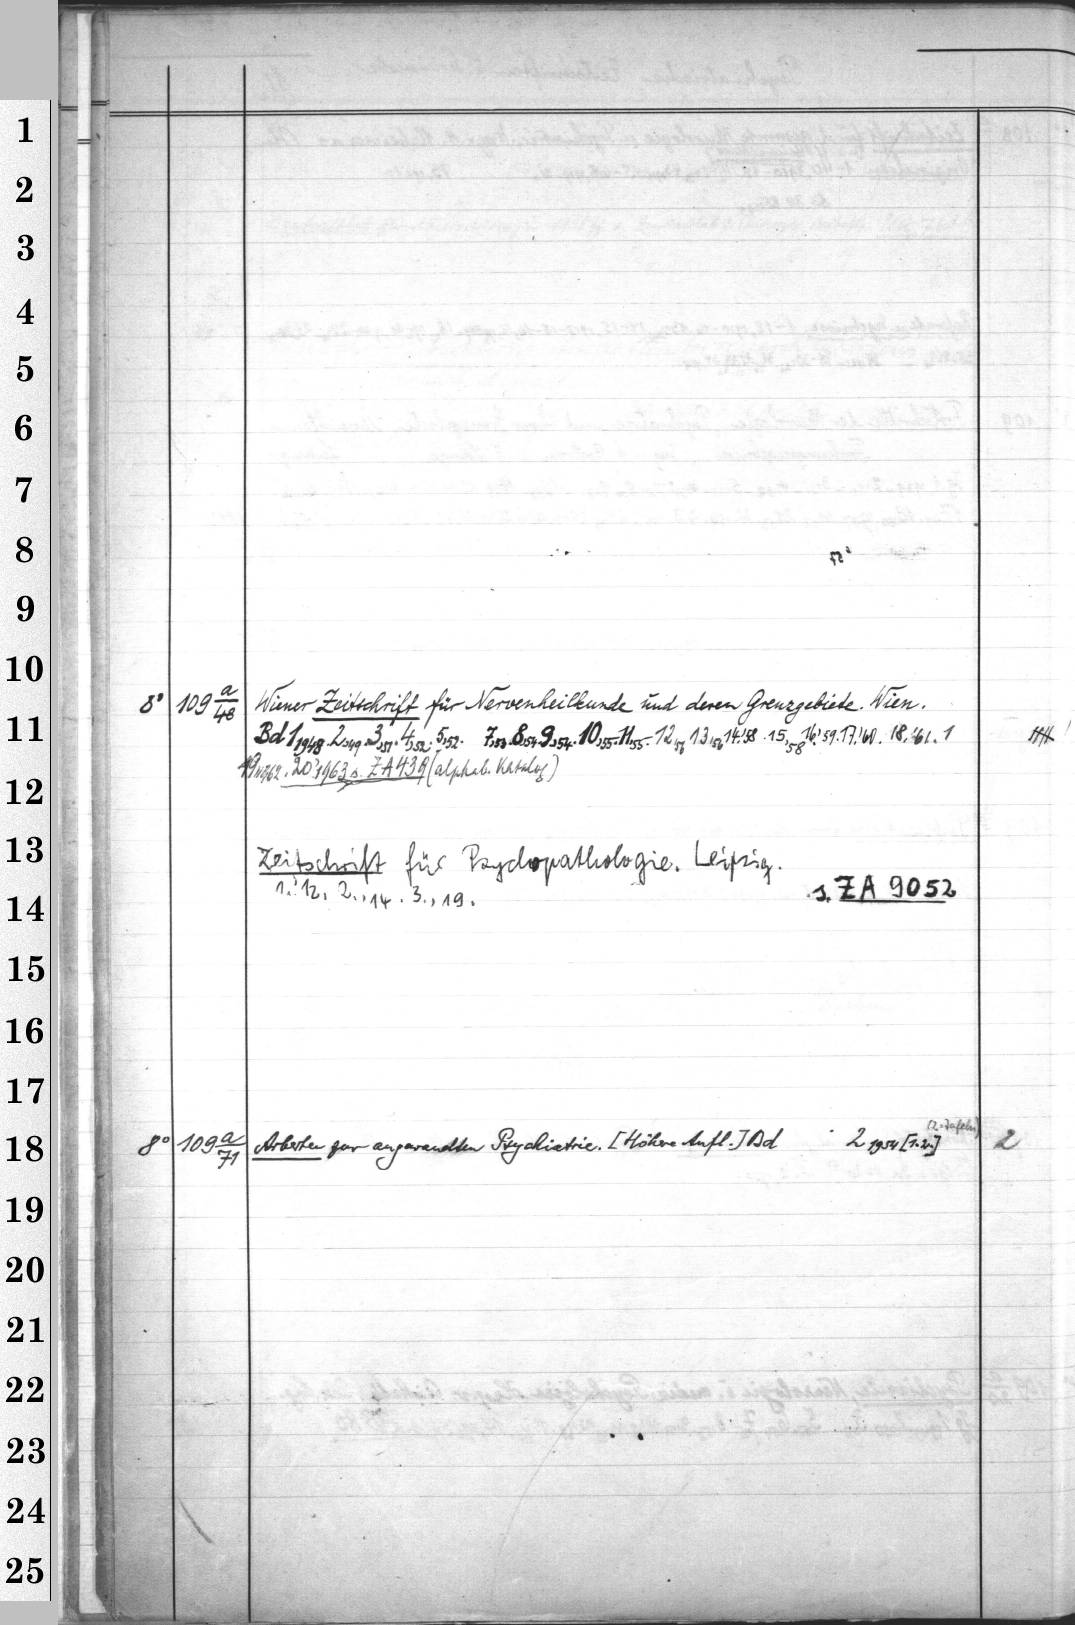 1
2
3
4
5
6
7
8
9
10
8° 109 a/48 Wiener Zeitschrift für Nervenheilkunde und deren Grenzgebiete. Wien.
11
Bd 1,1948. 2,49. 3,51. 4,52. 5,52. 7,53. 8,54. 9,54. 10,55. 11,55. 12,56. 13,56. 14,'58. 15,58. 16,'59. 17,'60. 18,'61. 1
19,1962. 20,1963 s. ZA 439 (alphab. Katalog)
12
13
Zeitschrift für Psychopathologie. Leipzig.
1.'12, 2.,14. 3.,19. s. ZA 9052
14
15
16
17
18
8° 109 a/71 Arbeiten zur angewandten Psychiatrie. [Höhere Aufl.] Bd 2 1954 [1.2.] (2=Tafeln) 2
19
20
21
22
23
24
25